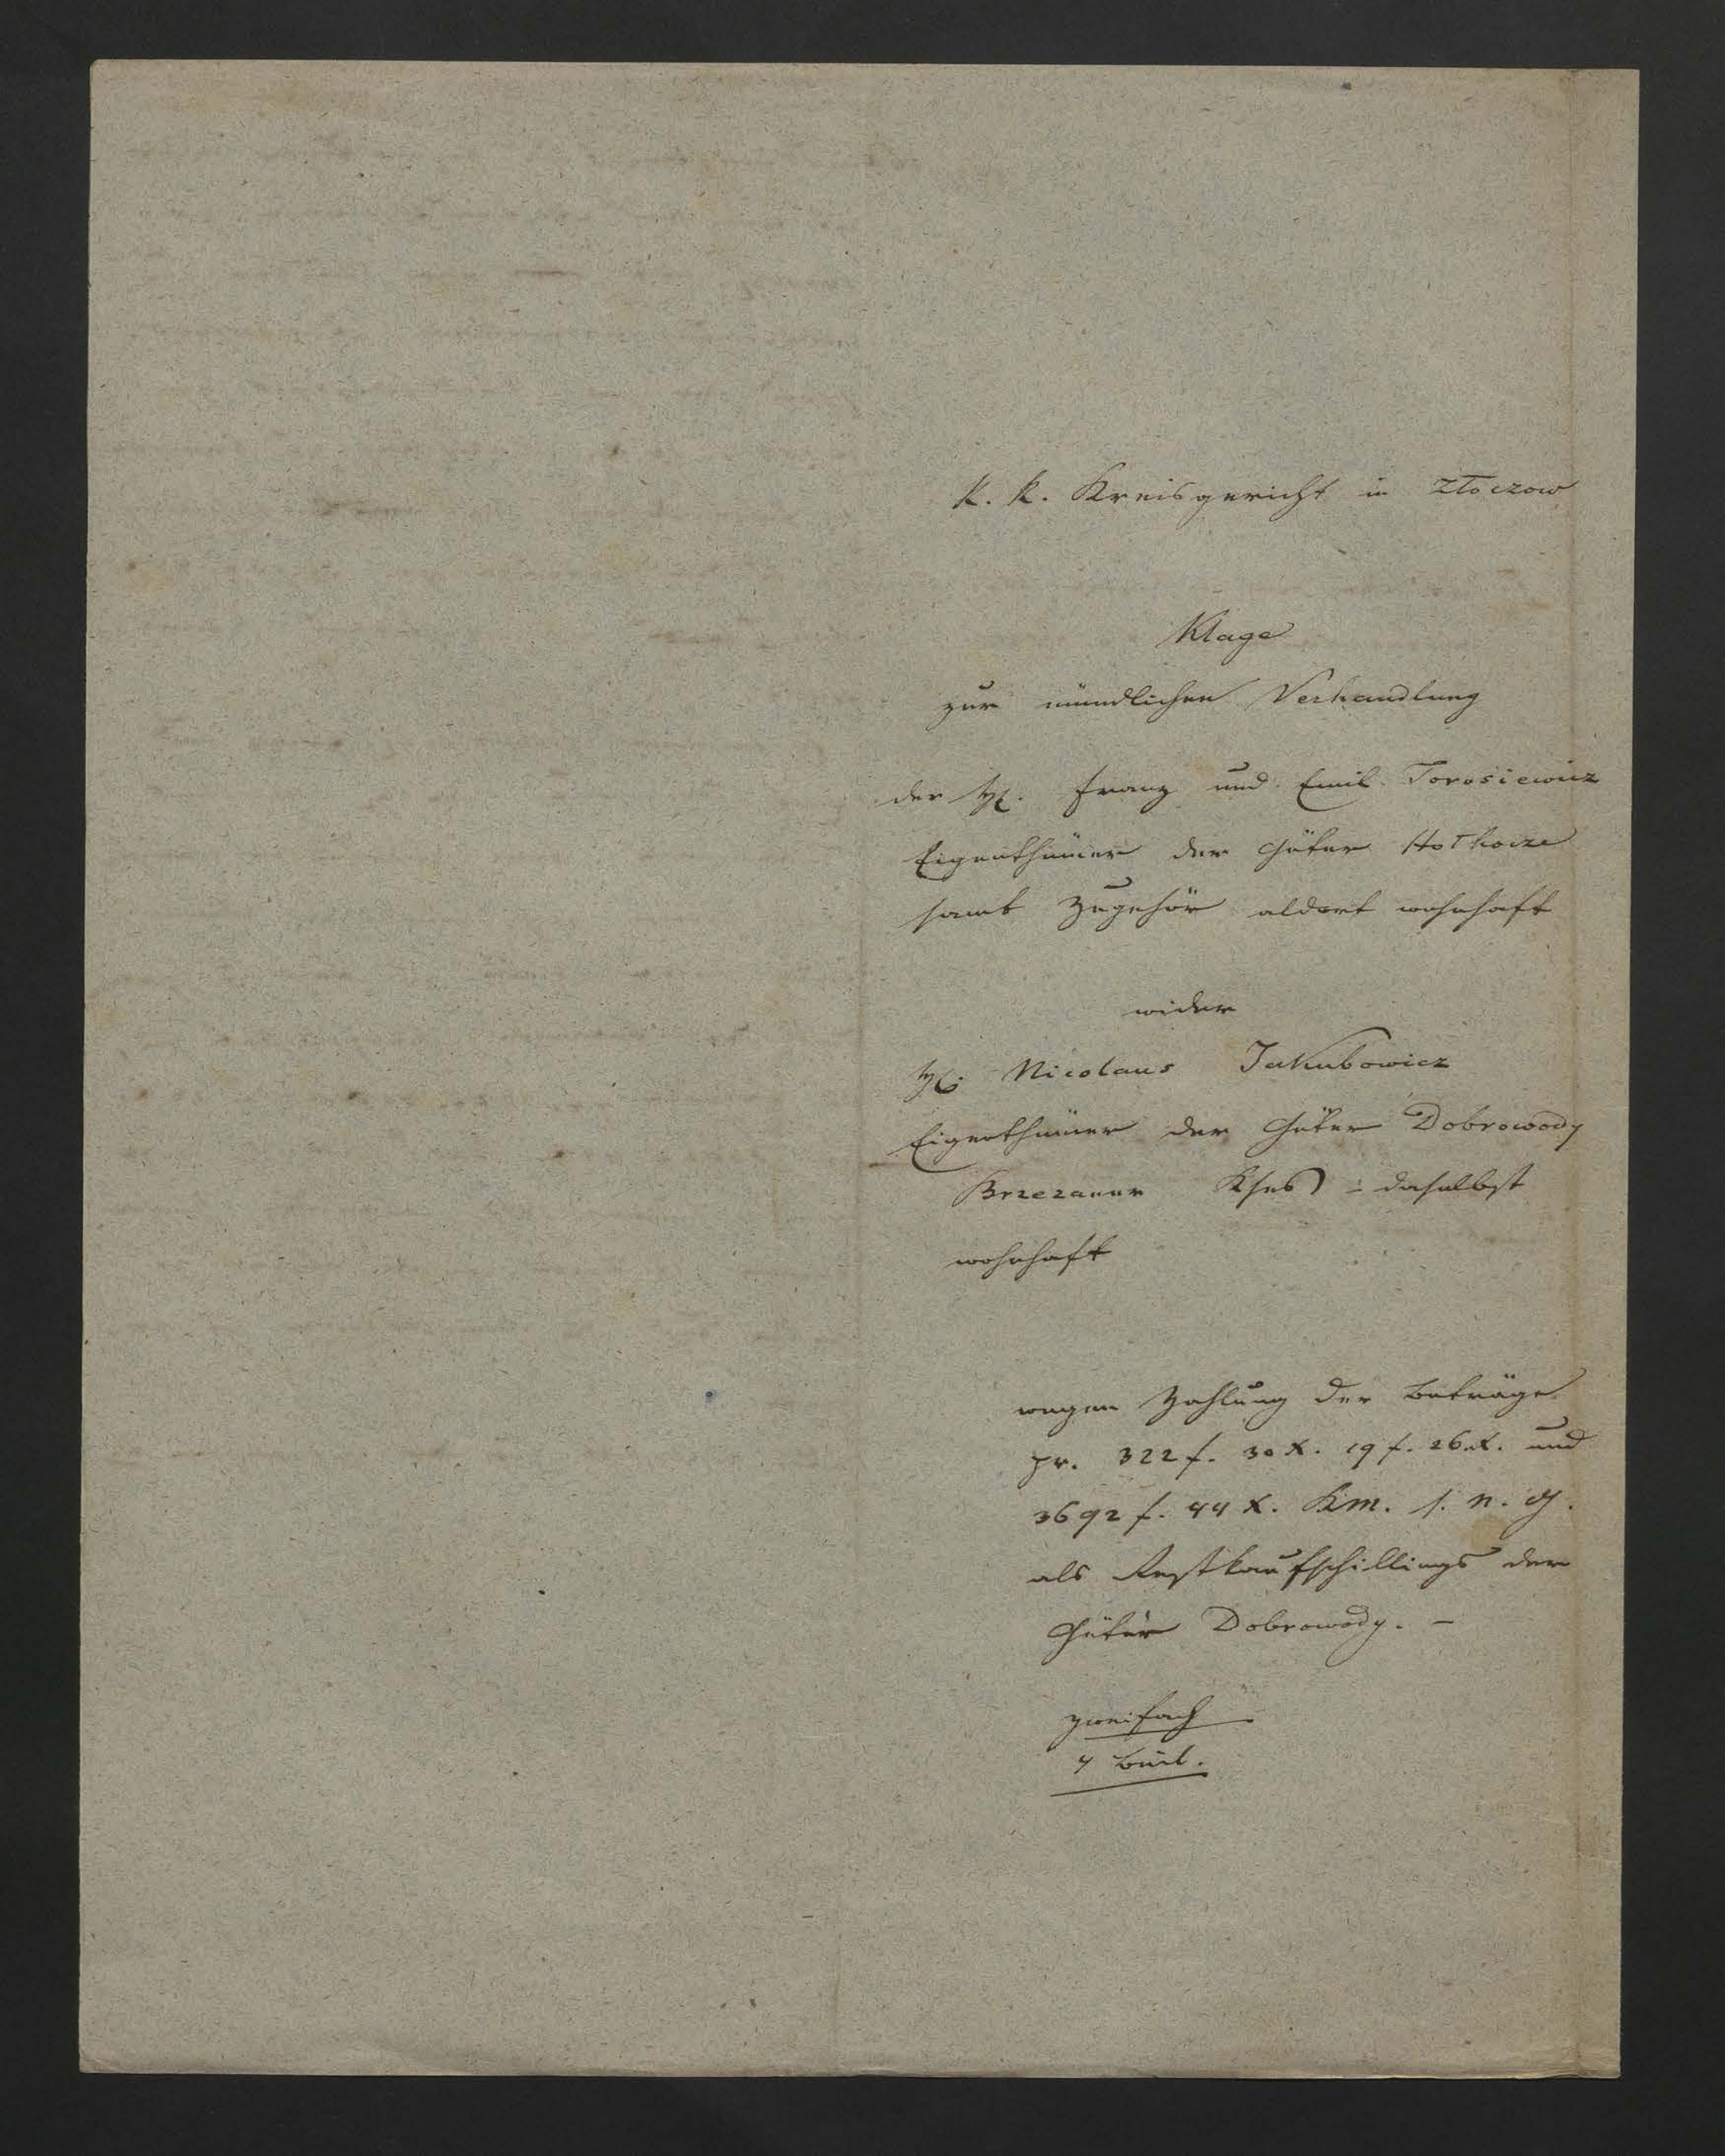 K. K. Kreisgericht in Złoczow
Klage
zur mündlichen Verhandlung
der H. Franz und Emil Torosiewicz
Eigenthümer der Güter Hołhocze
samt Zugehör aldort wohnhaft
wider
H. Nicolaus Jakubowicz
Eigenthümer der Güter Dobrowody
Brzezaner Kses daselbst
wohnhaft
wegen Zahlung der Beträge
pr. 322 f. 30 x. 19 f. 26 x. und
3692 f. 44 x. Km. s. n. G.
als Restkaufschillings der
Güter Dobrowody. –
zweifach
4 Beil.